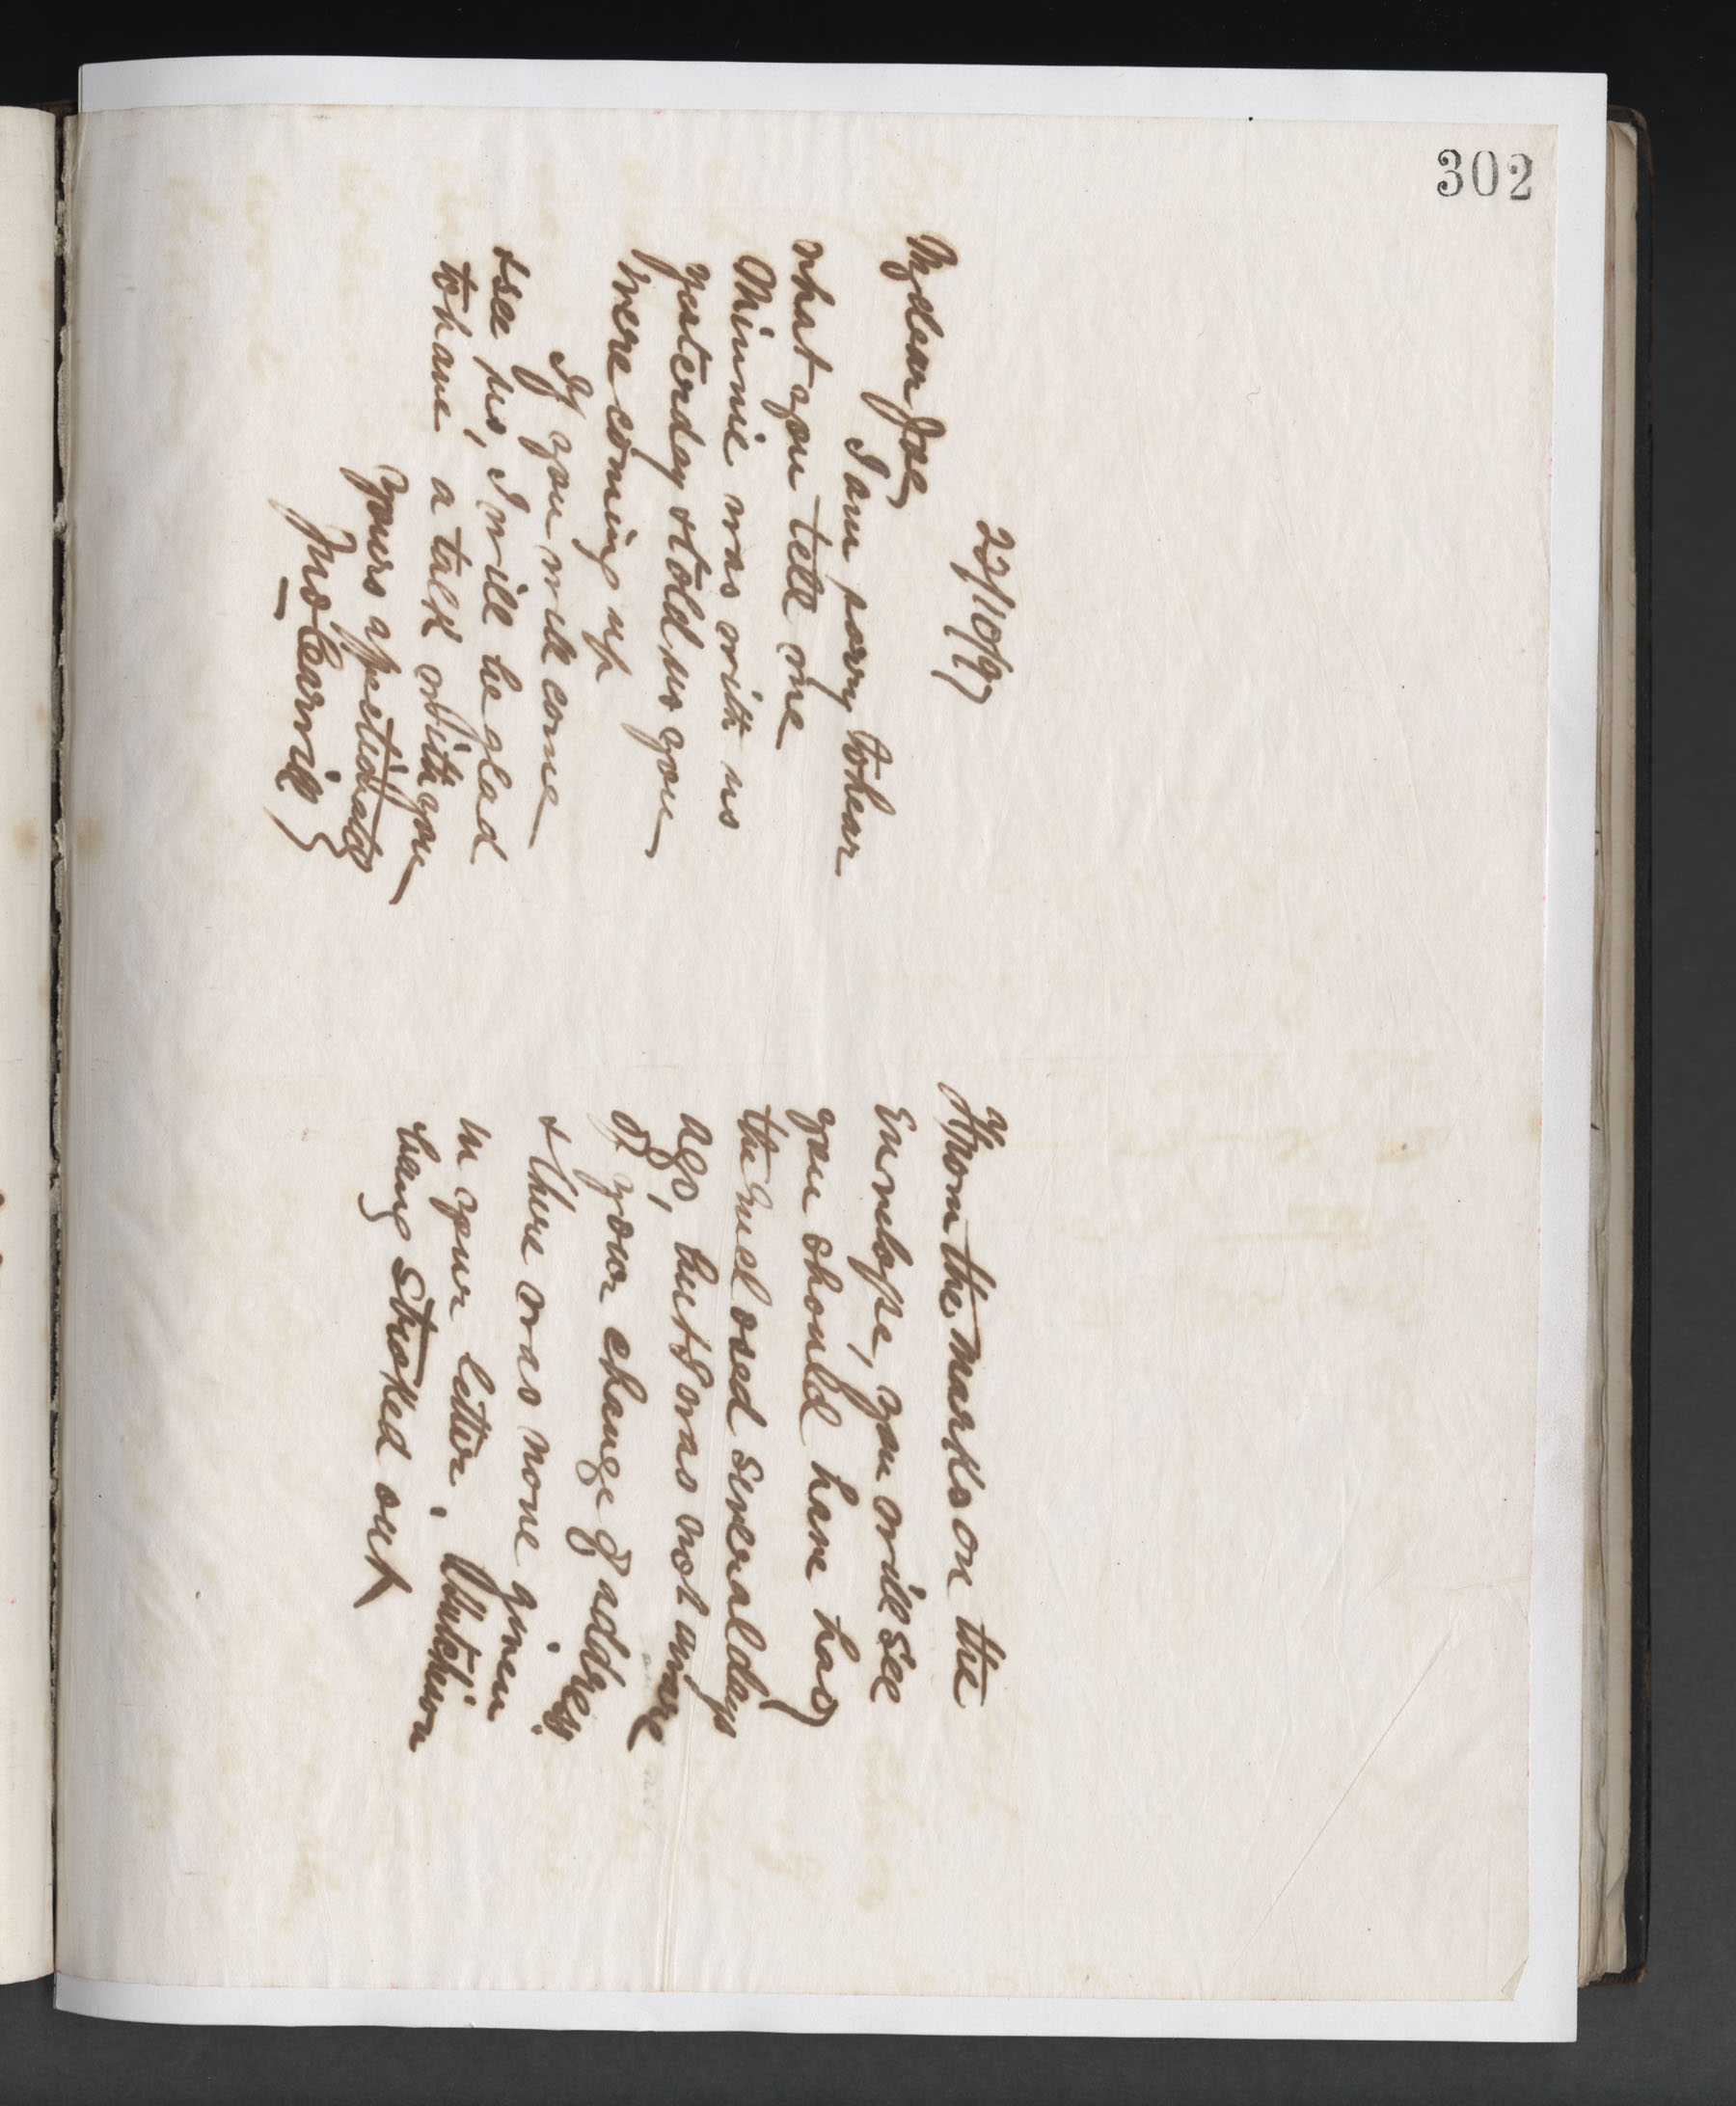 302
22/10/97
My dear Joe
I am sorry to hear
what you tell me
Minnie was with us
yesterday & told us you
were coming up
If you will come
& see us, I will be glad
to have a talk with you
Yours affectionately
Jno Carrick
From the marks on the
Envelope, you will see
you should have had
the Enclosed several days
ago, but I was not aware
of your change of address
& there was none given
in your letter, Hutcheson
being Stroked out